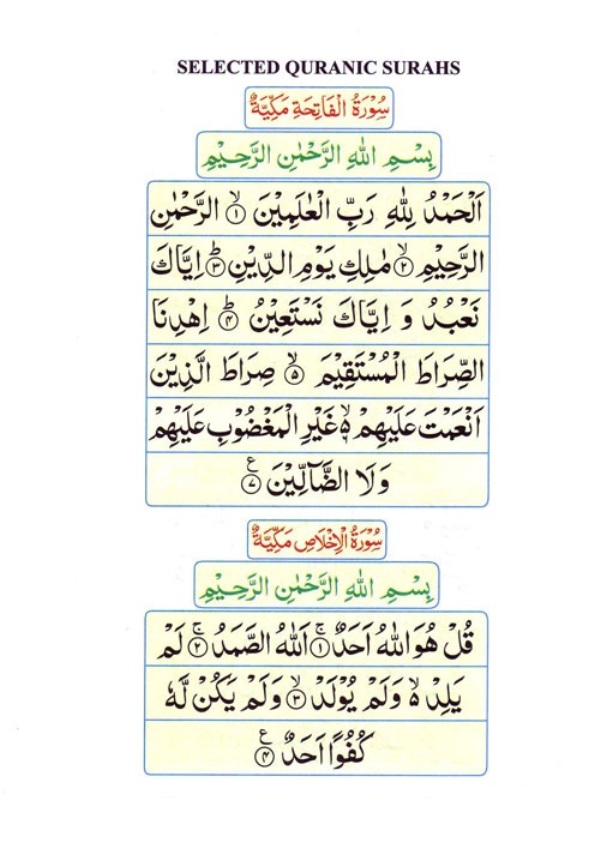 SELECTED QURANIC SURAHS
سُوْرَةُ الْفَاتِحَةِ مَكِّيَّةٌ
بِسْمِ اللّٰهِ الرَّحْمٰنِ الرَّحِيْمِ
اَلْحَمْدُ لِلّٰهِ رَبِّ الْعٰلَمِيْنَ ۙ﴿۱﴾ الرَّحْمٰنِ
الرَّحِيْمِ ۙ﴿۲﴾ مٰلِكِ يَوْمِ الدِّيْنِ ؕ﴿۳﴾ اِيَّاكَ
نَعْبُدُ وَ اِيَّاكَ نَسْتَعِيْنُ ؕ﴿۴﴾ اِهْدِنَا
الصِّرَاطَ الْمُسْتَقِيْمَ ۙ﴿۵﴾ صِرَاطَ الَّذِيْنَ
اَنْعَمْتَ عَلَيْهِمْ ۙ۬ غَيْرِ الْمَغْضُوْبِ عَلَيْهِمْ
وَلَا الضَّآلِّيْنَ ﴿۷﴾ ع
سُوْرَةُ الْاِخْلَاصِ مَكِّيَّةٌ
بِسْمِ اللّٰهِ الرَّحْمٰنِ الرَّحِيْمِ
قُلْ هُوَ اللّٰهُ اَحَدٌ ۚ﴿۱﴾ اَللّٰهُ الصَّمَدُ ۚ﴿۲﴾ لَمْ
يَلِدْ ۙ۬ وَلَمْ يُوْلَدْ ۙ﴿۳﴾ وَلَمْ يَكُنْ لَّهٗ
كُفُوًا اَحَدٌ ﴿۴﴾ ع